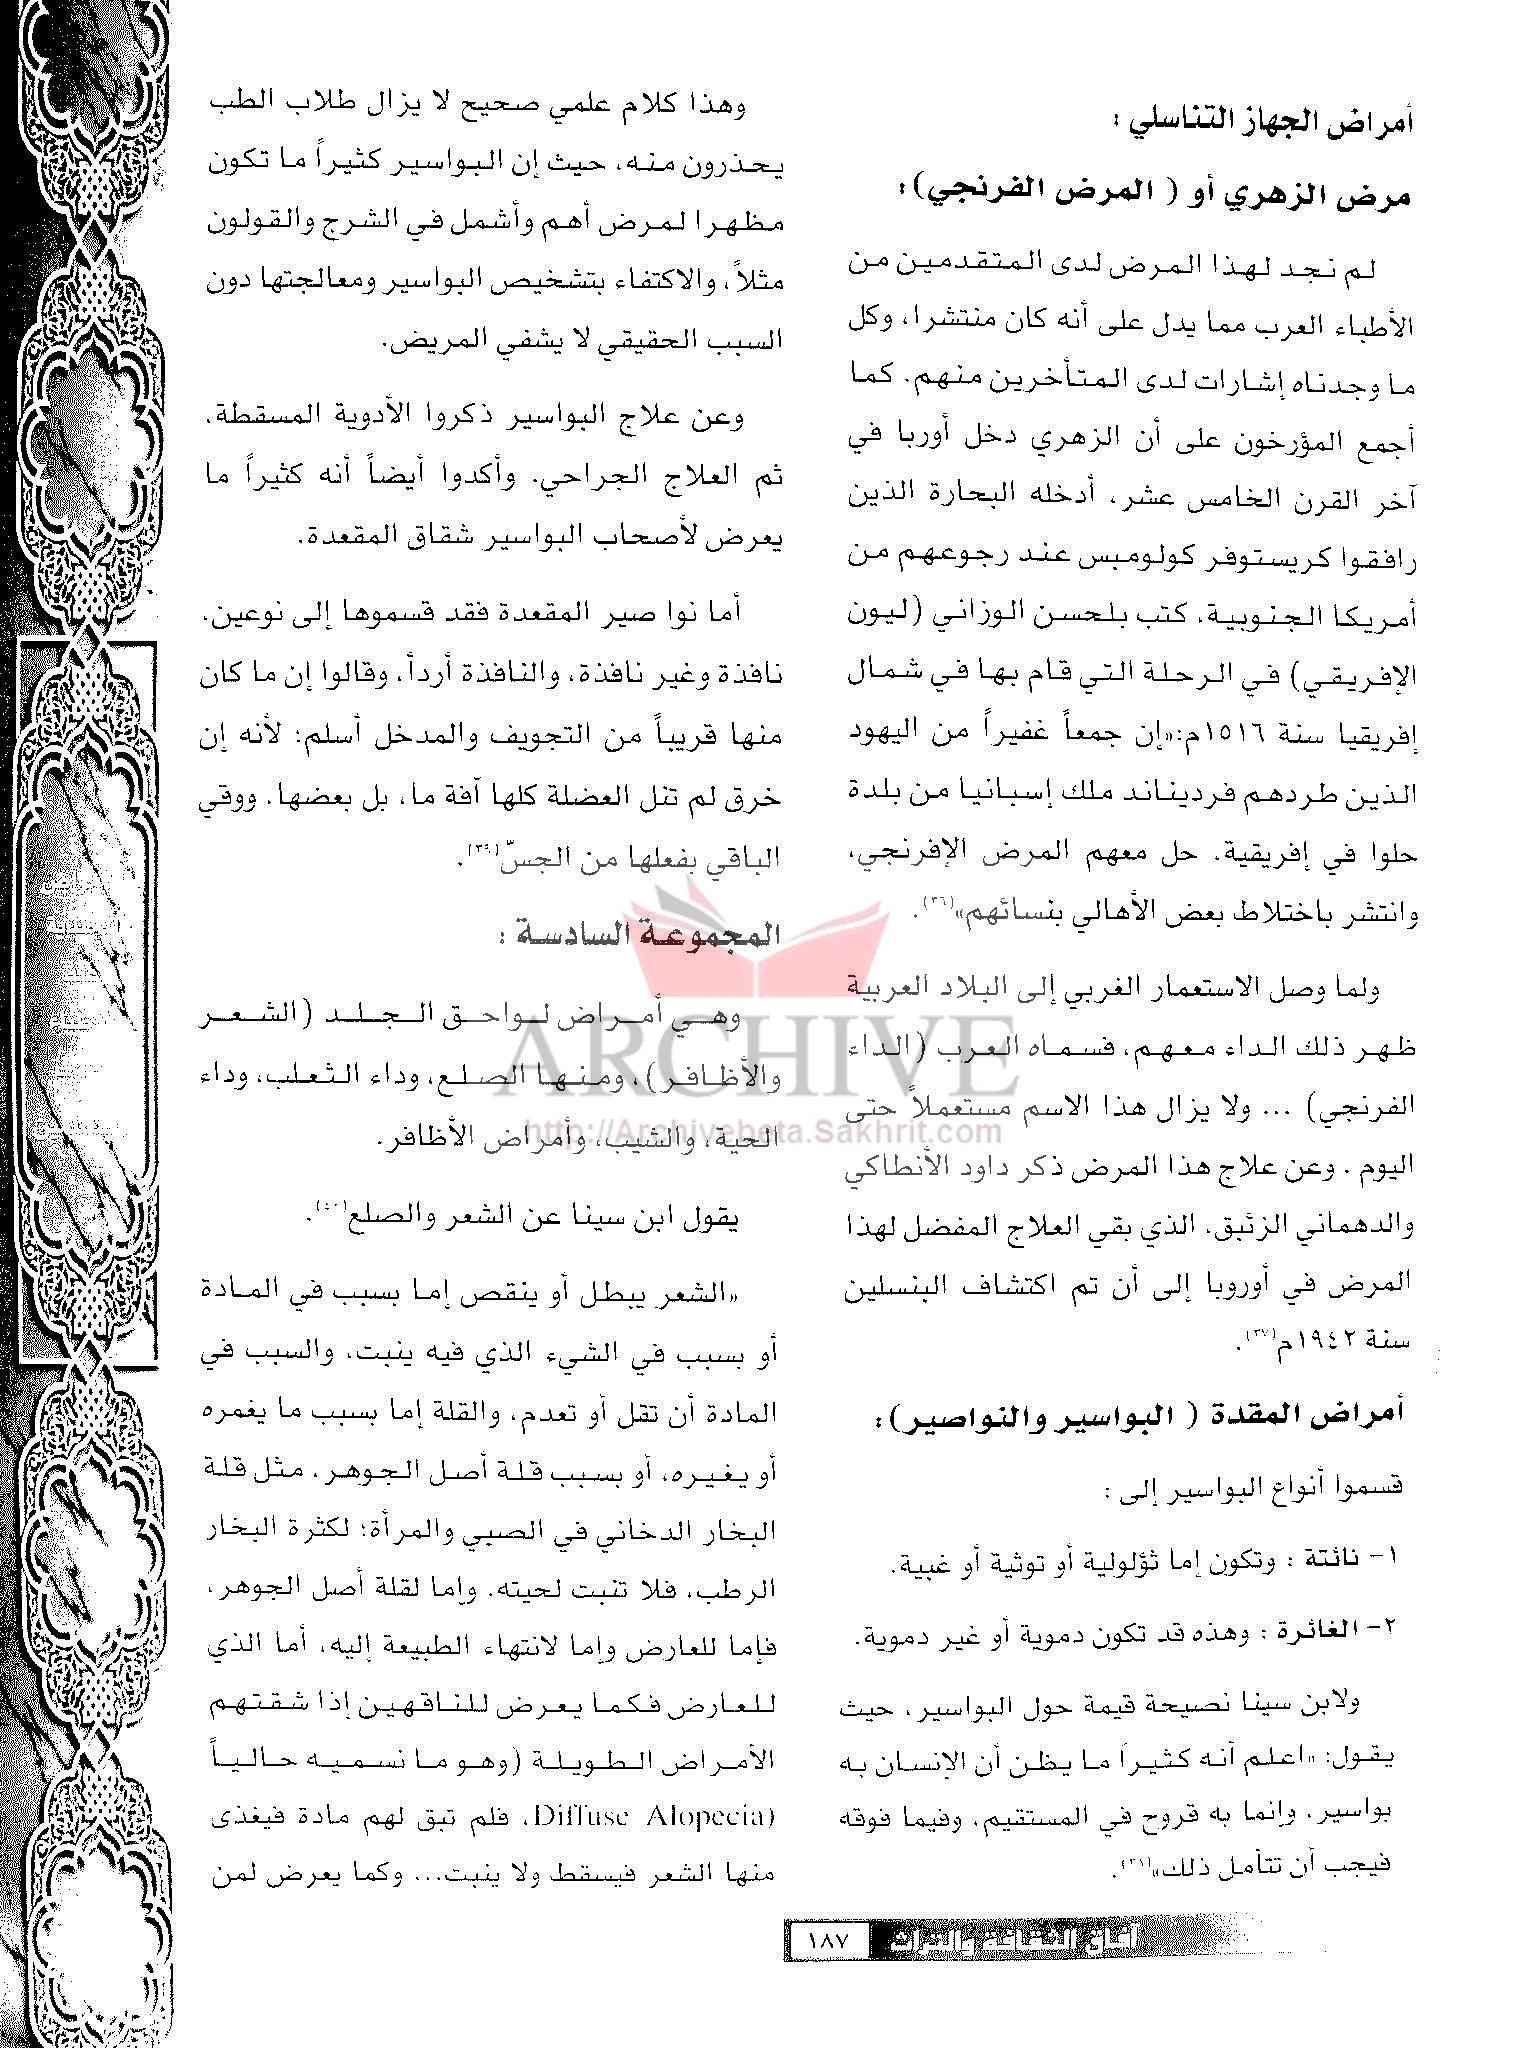 أمراض الجهاز التناسلي :
مرض الزهري أو ( المرض الفرنجي):
لم نجد لهذا المرض لدى المتقدمين من
الأطباء العرب مما يدل على أنه كان منتشرا، وكل
ما وجدناه إشارات لدى المتأخرين منهم. كما
أجمع المؤرخون على أن الزهري دخل أوربا في
آخر القرن الخامس عشر، أدخله البحارة الذين
رافقوا كريستوفر كولومبس عند رجوعهم من
أمريكا الجنوبية، كتب بلحسن الوزاني (ليون
الإفريقي) في الرحلة التي قام بها في شمال
إفريقيا سنة ١٥١٦م:«إن جمعاً غفيراً من اليهود
الذين طردهم فرديناند ملك إسبانيا من بلدة
حلوا في إفريقية، حل معهم المرض الإفرنجي،
وانتشر باختلاط بعض الأهالي بنسائهم»(٣٦).
ولما وصل الاستعمار الغربي إلى البلاد العربية
ظهر ذلك الداء معهم، فسماه العرب (الداء
الفرنجي) ... ولا يزال هذا الاسم مستعملاً حتى
اليوم . وعن علاج هذا المرض ذكر داود الأنطاكي
والدهماني الزئبق، الذي بقي العلاج المفضل لهذا
المرض في أوروبا إلى أن تم اكتشاف البنسلين
سنة ١٩٤٢م(٣٧).
أمراض المقدة ( البواسير والنواصير):
قسموا أنواع البواسير إلى :
١- نائتة : وتكون إما ثؤلولية أو توثية أو غبية.
٢- الغائرة : وهذه قد تكون دموية أو غير دموية.
ولابن سينا نصيحة قيمة حول البواسير، حيث
يقول: «اعلم أنه كثيراً ما يظن أن الإنسان به
بواسير، وإنما به قروح في المستقيم، وفيما فوقه
فيجب أن تتأمل ذلك»
وهذا كلام علمي صحيح لا يزال طلاب الطب
يحذرون منه، حيث إن البواسير كثيراً ما تكون
مظهرا لمرض أهم وأشمل في الشرج والقولون
مثلاً، والاكتفاء بتشخيص البواسير ومعالجتها دون
السبب الحقيقي لا يشفي المريض.
وعن علاج البواسير ذكروا الأدوية المسقطة،
ثم العلاج الجراحي. وأكدوا أيضاً أنه كثيراً ما
يعرض لأصحاب البواسير شقاق المقعدة.
أما نوا صير المقعدة فقد قسموها إلى نوعين،
نافذة وغير نافذة، والنافذة أردأ، وقالوا إن ما كان
منها قريباً من التجويف والمدخل أسلم؛ لأنه إن
خرق لم تنل العضلة كلها آفة ما، بل بعضها، ووقي
الباقي بفعلها من الجسّ(٣٩).
المجموعة السادسة :
وهي أمراض لواحق الجلد (الشعر
والأظافر)، ومنها الصلع، وداء الثعلب، وداء
الحية، والشيب، وأمراض الأظافر.
يقول ابن سينا عن الشعر والصلع(٤٠).
«الشعر يبطل أو ينقص إما بسبب في المادة
أو بسبب في الشيء الذي فيه ينبت، والسبب في
المادة أن تقل أو تعدم، والقلة إما بسبب ما يغمره
أو يغيره، أو بسبب قلة أصل الجوهر، مثل قلة
البخار الدخاني في الصبي والمرأة؛ لكثرة البخار
الرطب، فلا تنبت لحيته. وإما لقلة أصل الجوهر،
فإما للعارض وإما لانتهاء الطبيعة إليه، أما الذي
للعارض فكما يعرض للناقهين إذا شقتهم
الأمراض الطويلة (وهو ما نسميه حالياً
(Diffuse Alopecia، فلم تبق لهم مادة فيغذى
منها الشعر فيسقط ولا ينبت... وكما يعرض لمن
ARCHIVE
http://Archivebeta.Sakhrit.com
آفاق الثقافة والتراث ١٨٧